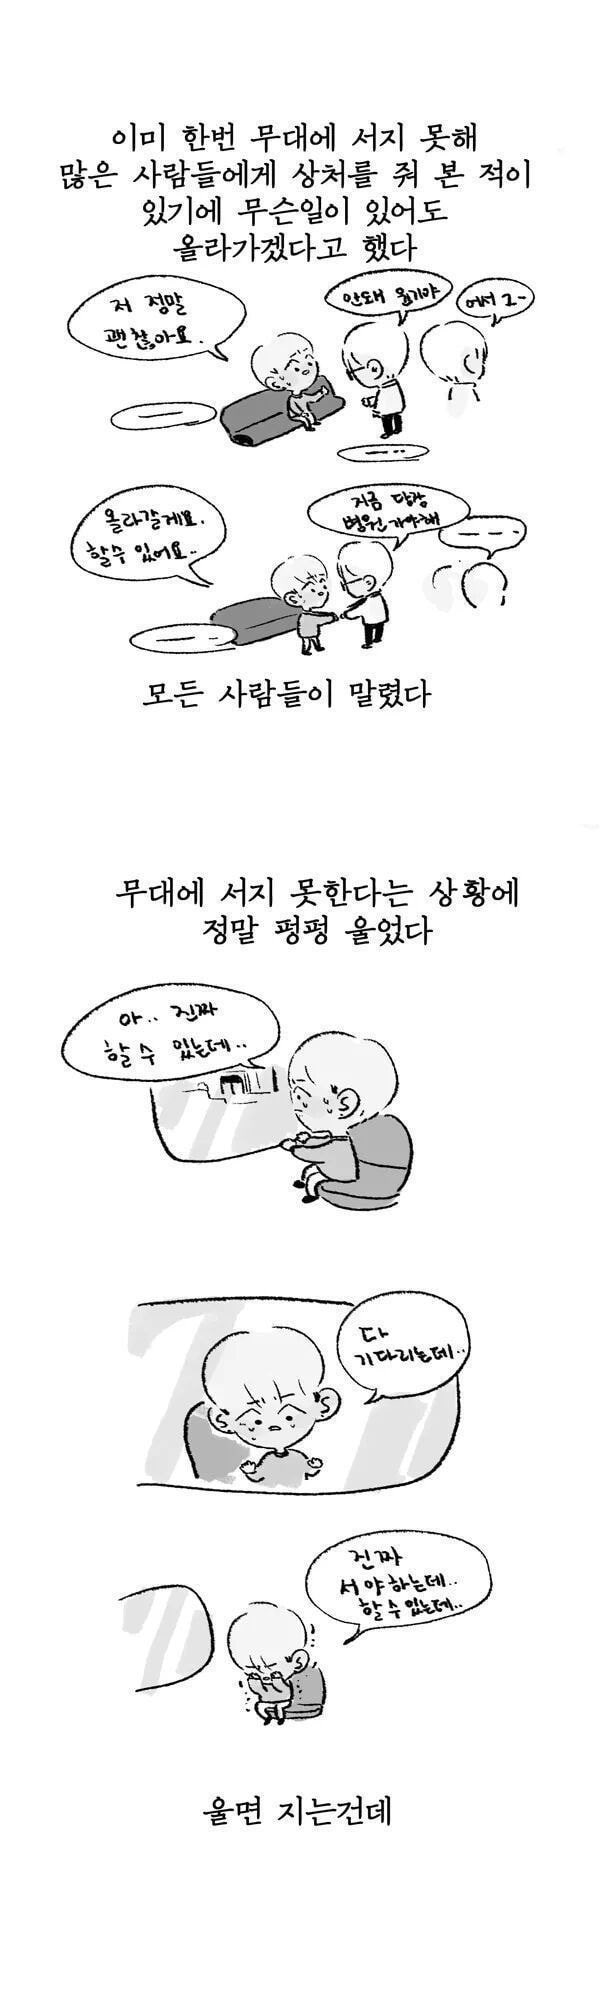 이미 한번 무대에 서지 못해
많은 사람들에게 상처를 줘 본 적이
있기에 무슨일이 있어도
올라가겠다고 했다
저 정말
괜찮아요.
안돼 욱기야
어서 그-
올라갈게요.
할수 있어요..
지금 당장
병원 가야해
모든 사람들이 말렸다
무대에 서지 못한다는 상황에
정말 펑펑 울었다
아.. 진짜
할 수 있는데..
다
기다리는데..
진짜
서야하는데..
할 수 있는데..
울면 지는건데